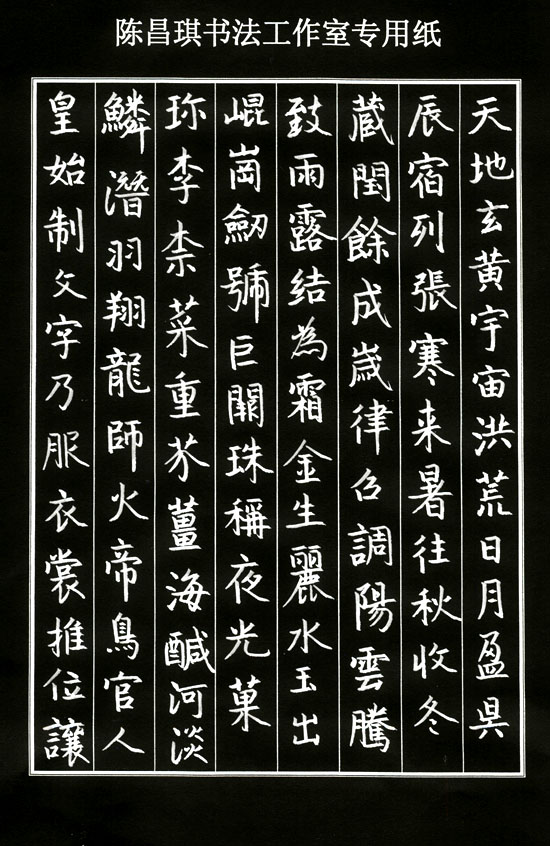 陈昌琪书法工作室专用纸
天地玄黄宇宙洪荒日月盈昃
辰宿列張寒来暑往秋收冬
蔵閏餘成嵗律召調陽雲騰
致雨露结為霜金生麗水玉出
崐崗劒號巨闕珠稱夜光菓
珎李柰菜重芥薑海鹹河淡
鱗潛羽翔龍師火帝鳥官人
皇始制文字乃服衣裳推位讓